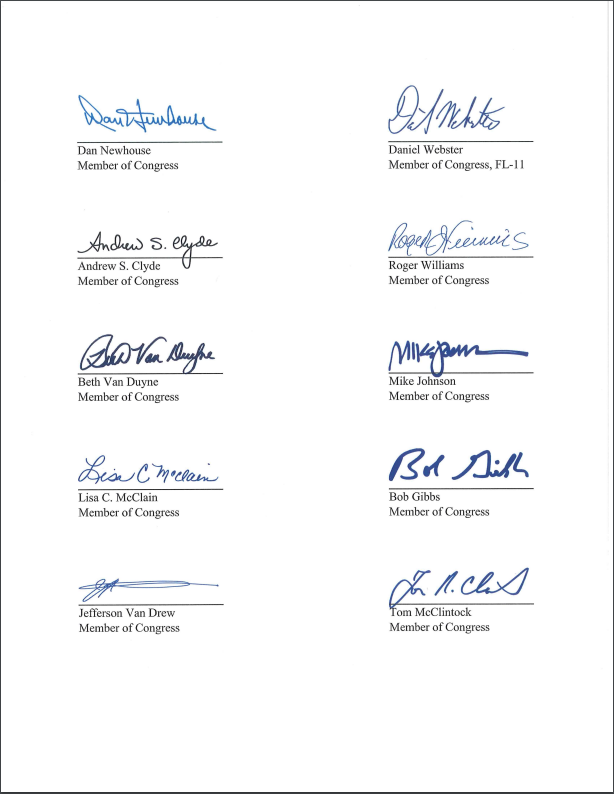 Dan Newhouse
Dan Newhouse
Member of Congress
Daniel Webster
Member of Congress, FL-11
Andrew S. Clyde
Andrew S. Clyde
Member of Congress
Roger Williams
Roger Williams
Member of Congress
Beth Van Duyne
Beth Van Duyne
Member of Congress
Mike Johnson
Member of Congress
Lisa C McClain
Lisa C. McClain
Member of Congress
Bob Gibbs
Bob Gibbs
Member of Congress
Jefferson Van Drew
Member of Congress
Tom McClintock
Member of Congress